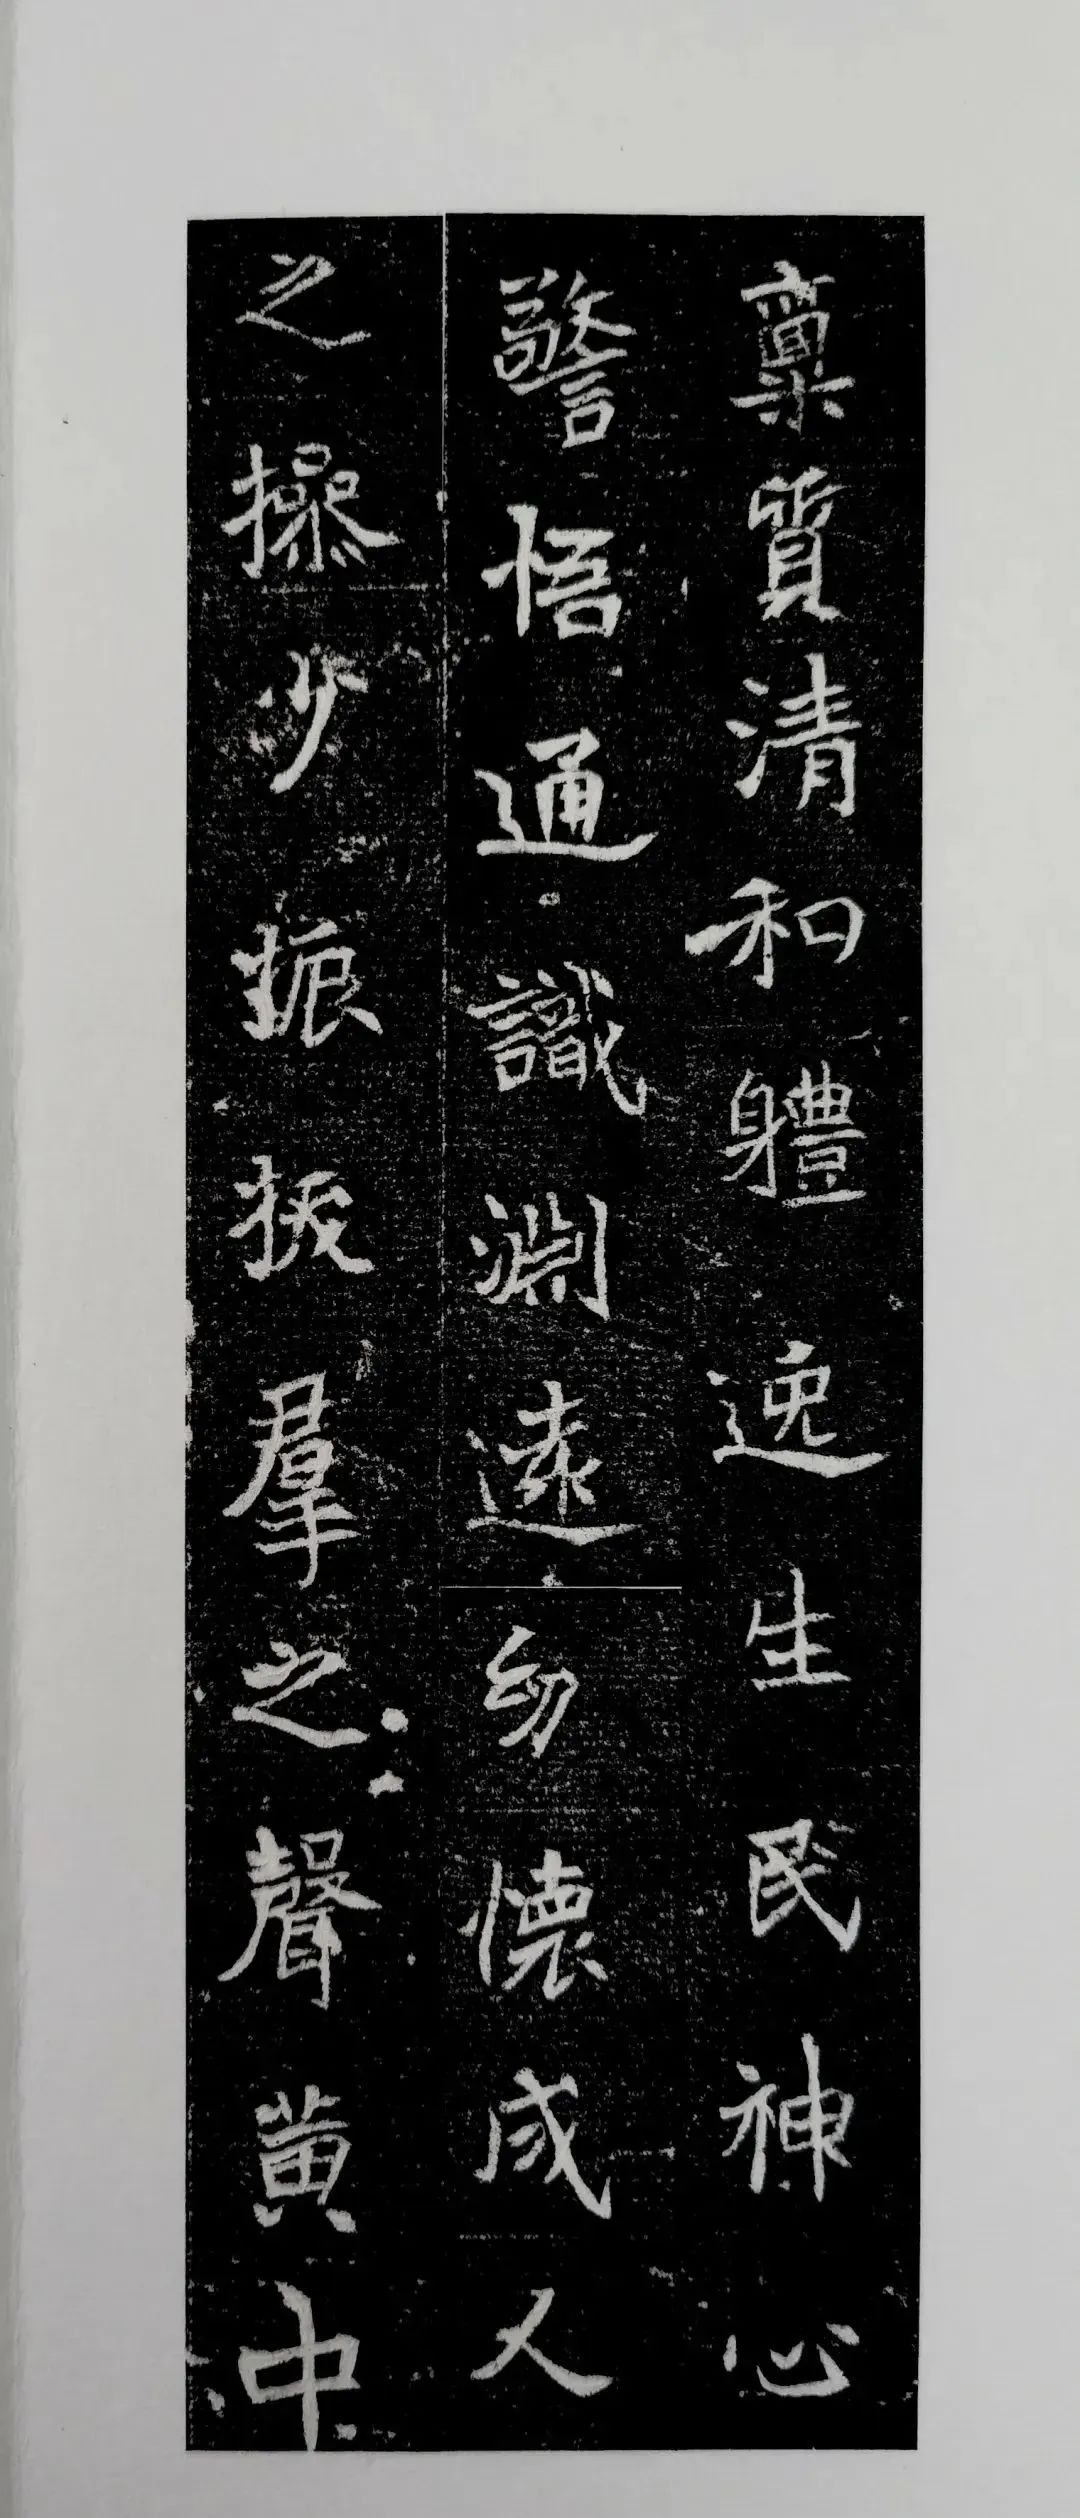 稟質清和軆逸生民神心
警悟通識淵遠幼懷成人
之操少振拔羣之聲黃中